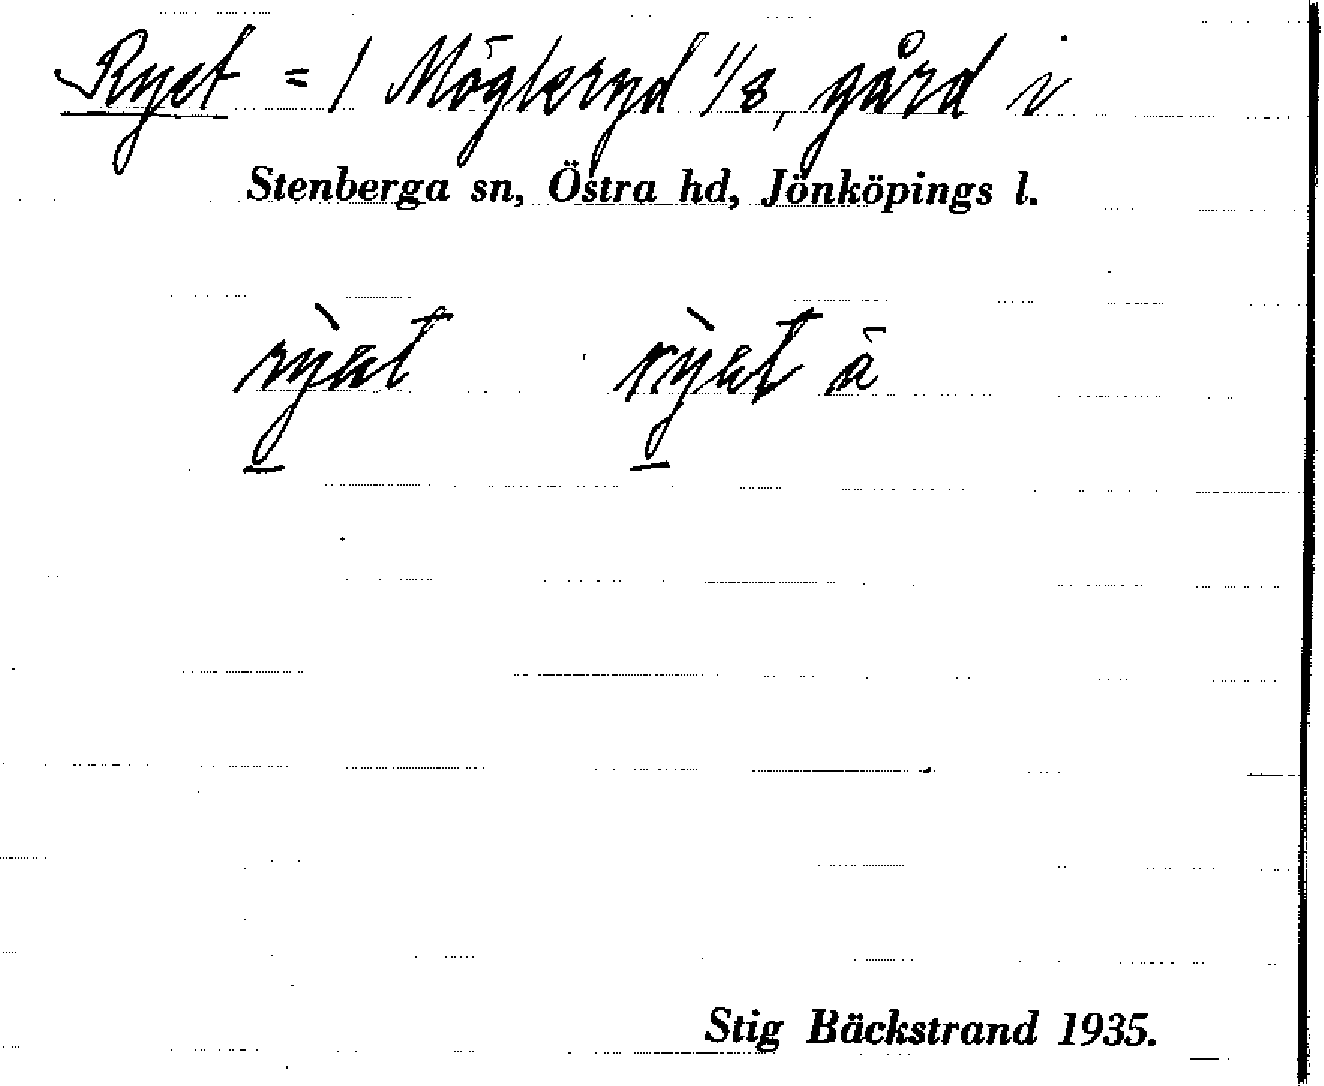 Ryet = / Möglaryd 1/8, gård i
Stenberga sn, Östra hd, Jönköpings l.
Stig Bäckstrand 1935.